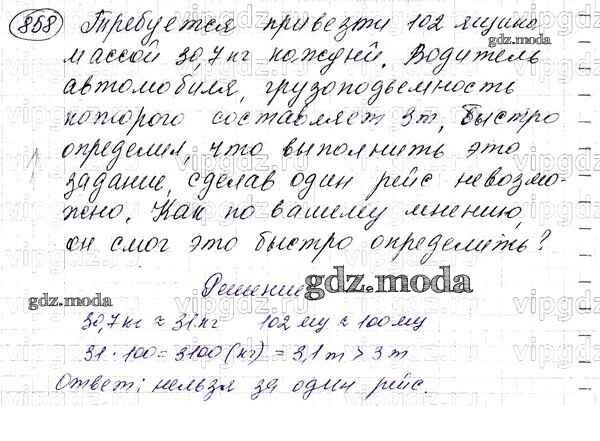 858 Требуется привезти 102 ящика
массой 30,7 кг каждый. Водитель
автомобиля, грузоподъемность
которого составляет 3т, быстро
определил, что выполнить это
задание, сделав один рейс невозмо-
жно. Как по вашему мнению,
он смог это быстро определить?
Решение
gdz.moda
30,7 кг ≈ 31 кг 102 шу ≈ 100 шу
31 · 100 = 3100 (кг) = 3,1 т > 3 т
Ответ: нельзя за один рейс.
gdz.moda
gdz.moda